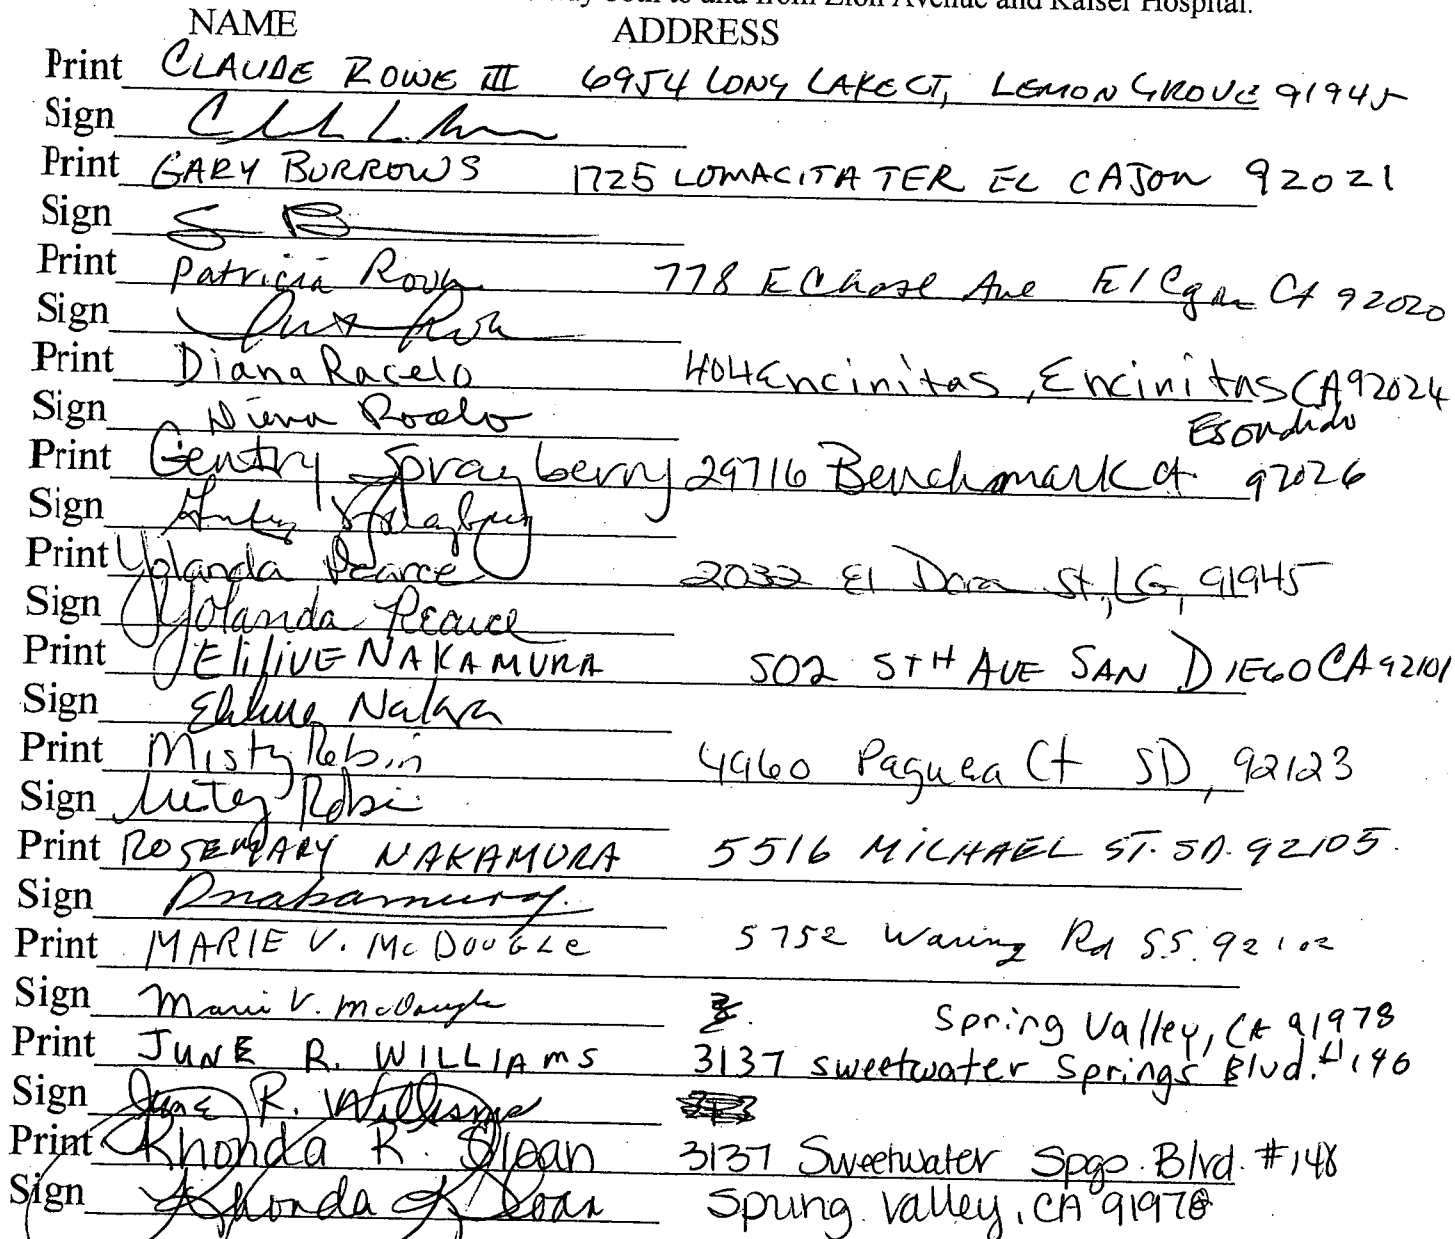 both to and from Zion Avenue and Kaiser Hospital.
NAME ADDRESS
Print CLAUDE ROWE III 6954 LONG LAKE CT, LEMON GROVE 91945
Sign
Print GARY BURROWS 1725 LOMACITA TER EL CAJON 92021
Sign
Print Patricia 778 E Chase Ave El Cajon 92020
Sign
Print Diana Racelo 404 Encinitas, Encinitas CA 92024
Sign Diana Racelo
Escondido
Print Gentry Sprayberry 29716 Benchmark Ct 92026
Sign
Print Yolanda Pearce 2032 El Dora St, LG, 91945
Sign Yolanda Pearce
Print NAKAMURA 502 5TH AVE SAN DIEGO CA 92101
Sign
Print Misty Robin 4960 Ct SD, 92123
Sign Misty
Print ROSEMARY NAKAMURA 5516 MICHAEL ST. SD. 92105.
Sign Rnakamura
Print MARIE V. McDOUGLE 5752 Waring Rd S.S. 92102
Sign Marie V. McDougle
Spring Valley, CA 91978
Print JUNE R. WILLIAMS 3137 Sweetwater Springs Blvd. #146
Sign June R. Williams
Print Rhonda R. Sloan 3137 Sweetwater Spgs. Blvd. #148
Sign Rhonda R. Sloan Spring Valley, CA 91978